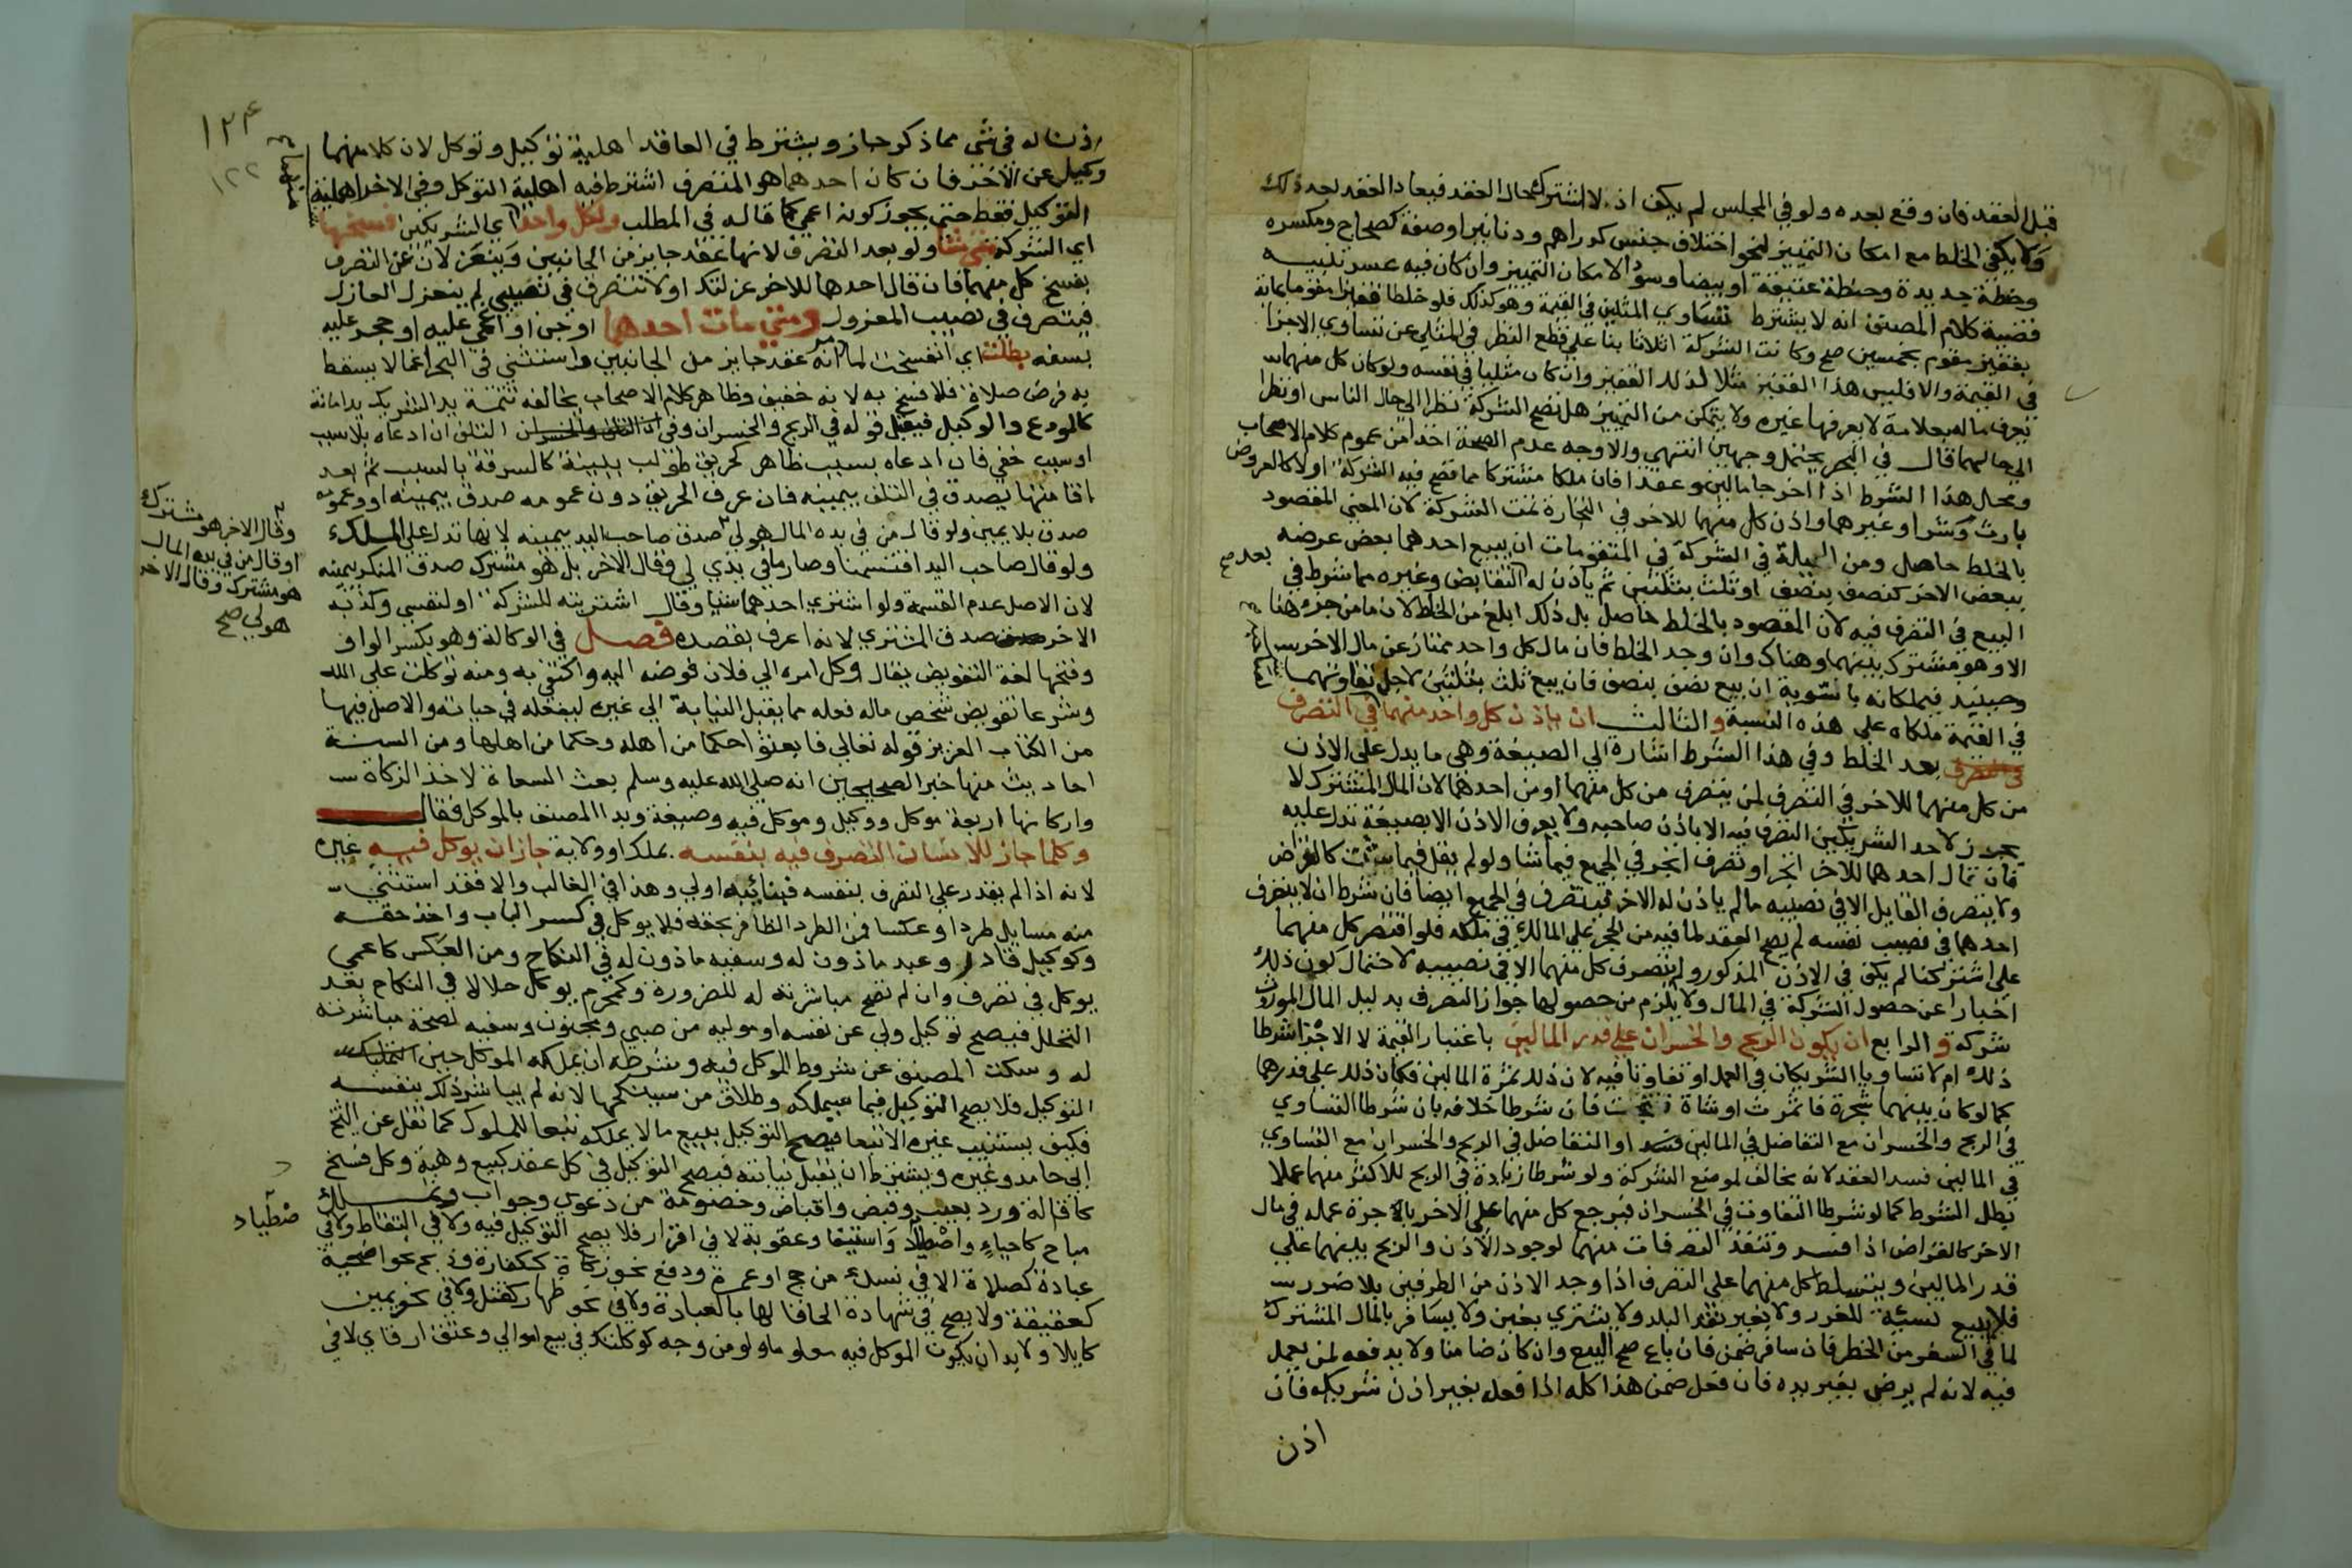 قبل العقد فان وقع بعده ولو في المجلس لم يكف اذ لا اشتراك حال العقد فيعاد العقد بعد ذلك
ولا يكفي الخلط مع امكان التمييز لنحو اختلاف جنس كدراهم ودنانير او صفة كصحاح ومكسره
وحنطة جديدة وحنطة عتيقة او بيضا وسودا لامكان التمييز وان كان فيه عسر تنبيه
قضية كلام المصنف انه لا يشترط تساوي المثلين في القيمة وهو كذلك فلو خلطا قفيزا مقوما بمائة
بقفيز مقوم بخمسين صح وكانت الشركة اثلاثا بنا على قطع النظر في المثلي عن تساوي الاجزا
في القيمة والا فليس هذا القفيز مثلا لذلك القفيز وان كان مثليا في نفسه ولو كان كل منهما
يعرف ماله بعلامة لا يعرفها غيره ولا يتمكن من التمييز هل تصح الشركة نظرا الي حال الناس او نظرا
الي حالهما قال في البحر يحتمل وجهين انتهي والاوجه عدم الصحة اخذا من عموم كلام الاصحاب
ومحل هذا الشرط اذا اخرجا مالين وعقدا فان ملكا مشتركا مما تصح فيه الشركة اولا كالعروض
بارث وشرا وغيرهما واذن كل منهما للاخر في التجارة تمت الشركة لان المعني المقصود
بالخلط حاصل ومن الحيلة في الشركة في المتقومات ان يبيع احدهما بعض عرضه
ببعض الاخر كنصف بنصف او ثلث بثلثين ثم ياذن له بعد التقابض وغيره مما شرط في
البيع في التصرف فيه لان المقصود بالخلط حاصل بل ذلك ابلغ من الخلط لان ما من جزء هنا
الا وهو مشترك بينهما وهناك وان وجد الخلط فان مال كل واحد ممتاز عن مال الاخر
وحينيذ فيملكانه بالسوية ان بيع نصف بنصف فان بيع ثلث بثلثين لاجل تفاوتهما
في القيمة ملكاه على هذه النسبة والثالث ان ياذن كل واحد منهما في التصرف
بعد الخلط وفي هذا الشرط اشارة الي الصيغة وهي ما يدل على الاذن
من كل منهما للاخر في التصرف لمن يتصرف من كل منهما او من احدهما لان المال المشترك لا
يجوز لاحد الشريكين التصرف فيه الا باذن صاحبه ولا يعرف الاذن الا بصيغة تدل عليه
فان قال احدهما للاخر اتجر او تصرف اتجر في الجميع فيما شا ولو لم يقل فيما شئت كالقراض
ولا يتصرف القايل الا في نصيبه ما لم ياذن له الاخر فيتصرف في الجميع ايضا فان شرط ان لا يتصرف
احدهما في نصيب نفسه لم يصح العقد لما فيه من الحجر على المالك في ملكه فلو اقتصر كل منهما
على اشتركنا لم يكف في الاذن المذكور ولم يتصرف كل منهما الا في نصيبه لاحتمال كون ذلك
اخبارا عن حصول الشركة في المال ولا يلزم من حصولها جواز التصرف بدليل المال الموروث
شركة والرابع ان يكون الربح والخسران على قدر المالين باعتبار القيمة لا الاجزا شرطا
ذلك ام لا تساويا الشريكان في العمل او تفاوتا فيه لان ذلك ثمرة المالين فكان ذلك على قدرهما
كما لو كان بينهما شجرة فاثمرت او شاة فنتجت فان شرطا خلافه بان شرطا التساوي
في الربح والخسران مع التفاضل في المالين فسد او التفاضل في الربح والخسران مع التساوي
في المالين فسد العقد لانه مخالف لموضع الشركة ولو شرطا زيادة في الربح للاكثر منهما عملا
بطل الشرط كما لو شرطا التفاوت في الخسران فيرجع كل منهما على الاخر باجرة عمله في مال
الاخر كالقراض اذا فسد وتنفذ التصرفات منهما لوجود الاذن والربح بينهما على
قدر المالين ويتسلط كل منهما على التصرف اذا وجد الاذن من الطرفين بلا ضرر
فلا يبيع نسيئة للغرر ولا بغير نقد البلد ولا يشتري بغبن ولا يسافر بالمال المشترك
لما في السفر من الخطر فان سافر ضمن فان باع صح البيع وان كان ضامنا ولا يدفعه لمن يعمل
فيه لانه لم يرض بغير يده فان فعل ضمن هذا كله اذا فعله بغير اذن شريكه فان
اذن
١٢٤
١٢٢
اذن له في شي مما ذكر جاز ويشترط في العاقد اهلية توكيل وتوكل لان كلا منهما
وكيل عن الاخر فان كان احدهما هو المتصرف اشترط فيه اهلية التوكل وفي الاخر اهلية
التوكيل فقط حتي يجوز كونه اعمي كما قاله في المطلب ولكل واحد اي الشريكين فسخها
اي الشركة متي شا ولو بعد التصرف لانها عقد جايز من الجانبين وينعزلان عن التصرف
بفسخ كل منهما فان قال احدهما للاخر عزلتك او لا تتصرف في نصيبي لم ينعزل العازل
فيتصرف في نصيب المعزول ومتي مات احدهما او جن او اغمي عليه او حجر عليه
بسفه بطلت اي انفسخت لما مر انه عقد جايز من الجانبين واستثني في البحر اغما لا يسقط
به فرض صلاة فلا فسخ به لانه خفيف وظاهر كلام الاصحاب يخالفه تتمة يد الشريك يد امانة
كالمودع والوكيل فيقبل قوله في الربح والخسران وفي التلف ان ادعاه بلا سبب
او سبب خفي فان ادعاه بسبب ظاهر كحريق طولب ببينة كالسرقة بالسبب ثم بعد
اقامتها يصدق في التلف بيمينه فان عرف الحريق دون عمومه صدق بيمينه او وعمومه
صدق بلا يمين ولو قال من في يده المال هو لي صدق صاحب اليد بيمينه لانها تدل على الملك
وقال الاخر هو مشترك
او قال من في يده المال
هو مشترك وقال الاخر
هو لي صح
ولو قال صاحب اليد اقتسمنا وصار ما في يدي لي وقال الاخر بل هو مشترك صدق المنكر بيمينه
لان الاصل عدم القسمة ولو اشتري احدهما شيا وقال اشتريته للشركة او لنفسي وكذبه
الاخر صدق المشتري لانه اعرف بقصده فصل في الوكالة وهو بكسر الواو
وفتحها لغة التفويض يقال وكل امره الي فلان فوضه اليه واكتفي به ومنه توكلت على الله
وشرعا تفويض شخص ماله فعله مما يقبل النيابة الي غيره ليفعله في حياته والاصل فيها
من الكتاب العزيز قوله تعالي فابعثوا حكما من اهله وحكما من اهلها ومن السنة
احاديث منها خبر الصحيحين انه صلى الله عليه وسلم بعث السعاة لاخذ الزكاة
واركانها اربعة موكل ووكيل وموكل فيه وصيغة وبدا المصنف بالموكل فقال
وكلما جاز للانسان التصرف فيه بنفسه بملك او ولاية جاز ان يوكل فيه غيره
لانه اذا لم يقدر على التصرف بنفسه فبنائبه اولي وهذا في الغالب والا فقد استثني
منه مسايل طردا وعكسا فمن الطرد الظافر بحقه فلا يوكل في كسر الباب واخذ حقه
وكوكيل قادر وعبد ماذون له وسفيه ماذون له في النكاح ومن العكس كاعمي
يوكل في تصرف وان لم تصح مباشرته له للضرورة وكمحرم يوكل حلالا في النكاح بعد
التحلل فيصح توكيل ولي عن نفسه او موليه من صبي ومجنون وسفيه لصحة مباشرته
له وسكت المصنف عن شروط الموكل فيه وشرطه ان يملكه الموكل حين
التوكيل فلا يصح التوكيل فيما سيملكه وطلاق من سينكحها لانه لم يباشر ذلك بنفسه
فكيف يستنيب غيره الا تبعا فيصح التوكيل ببيع ما لا يملكه تبعا للمملوك كما نقل عن الشيخ
ابي حامد وغيره ويشترط ان يقبل نيابته فيصح التوكيل في كل عقد كبيع وهبة وكل فسخ
كاقالة ورد بعيب وقبض واقباض وخصومة من دعوي وجواب وتملك
مباح كاحياء واصطياد واستيفا وعقوبة لا في اقرار فلا يصح التوكيل فيه ولا في التقاط ولا في
صطياد
عبادة كصلاة الا في نسك من حج او عمرة ودفع نحو زكاة ككفارة وذبح نحو اضحية
كعقيقة ولا يصح في شهادة الحاقا لها بالعبادة ولا في نحو ظهار كقتل ولا في نحو يمين
كايلا ولا بد ان يكون الموكل فيه معلوما ولو من وجه كوكلتك في بيع اموالي وعتق ارقاي لا في